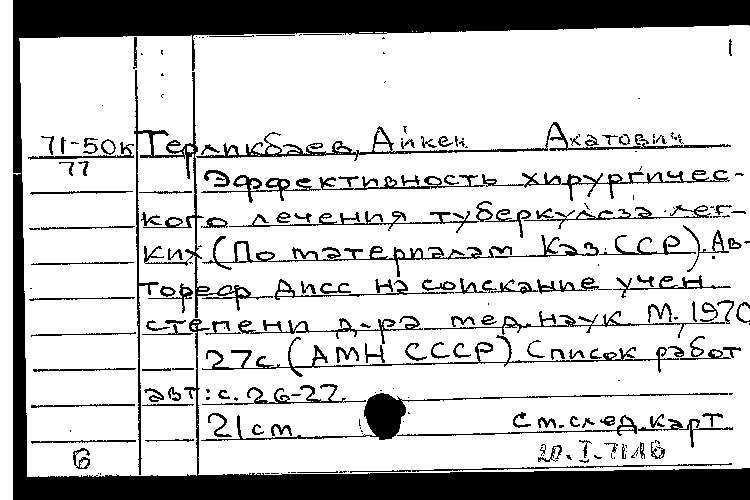 1
71-50к Терликбаев, Айкен Акатович
77
Эффективность хирургичес-
кого лечения туберкулеза лег-
ких (По материалам Каз. ССР). Ав-
тореф дисс на соискание учен.
степени д-ра мед. наук. М., 1970
27с. (АМН СССР) Список работ
авт: с. 26-27.
21 см. См. след. карт
В 20.I.71